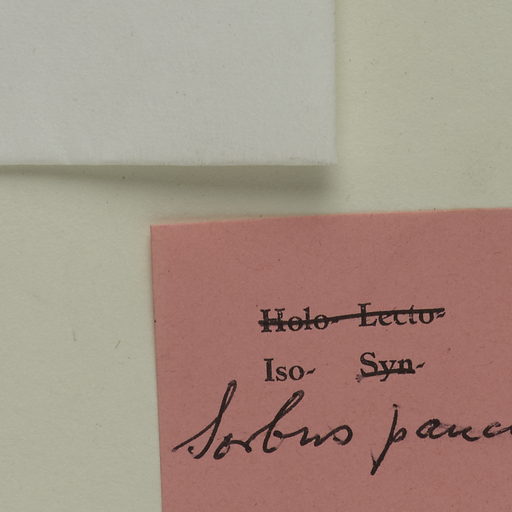 Holo- Lecto-
Iso- Syn-
Sorbus